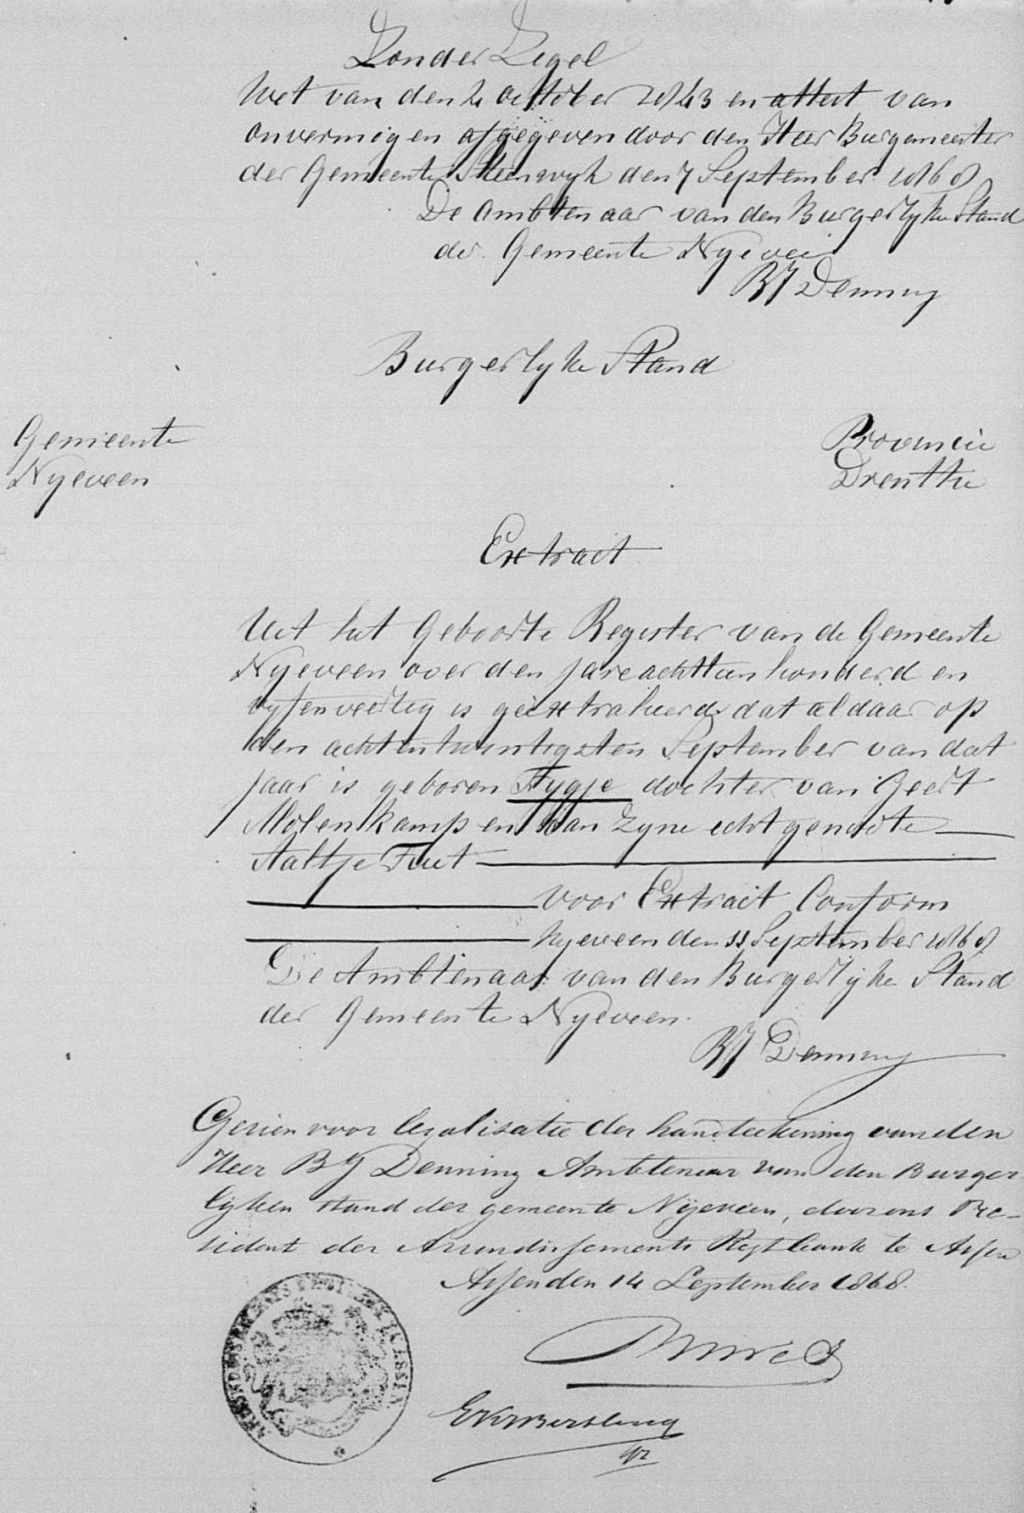 Zonder Zegel
Wet van den 4 october 1843 en attest van
onvermogen afgegeven door den Heer Burgemeester
der Gemeente Steenwyk den 7 September 1868
De Ambtenaar van den Burgerlyke Stand
der Gemeente Nyeveen
BJ Denning
Burgerlyke Stand
Gemeente
Nyeveen
Provincie
Drenthe
Extract
Uit het Geboorte Register van de Gemeente
Nyeveen over den jare achttien honderd en
vyfenveertig is geextraheerd dat aldaar op
den achtentwintigsten September van dat
jaar is geboren Fygje dochter van Geert
Molenkamp en van zyne echtgenoote
Aaltje
voor Extract Conform
Nyeveen den 11 September 1868
De Ambtenaar van den Burgerlijke Stand
der Gemeente Nyeveen.
BJ Denning
Gezien voor legalisatie der handteekening van den
Heer BJ Denning Ambtenaar van den Burger
lijken stand der gemeente Nijeveen, door ons Pre-
sident der Arrondissements Regtbank te Assen
Assen den 14 September 1868.